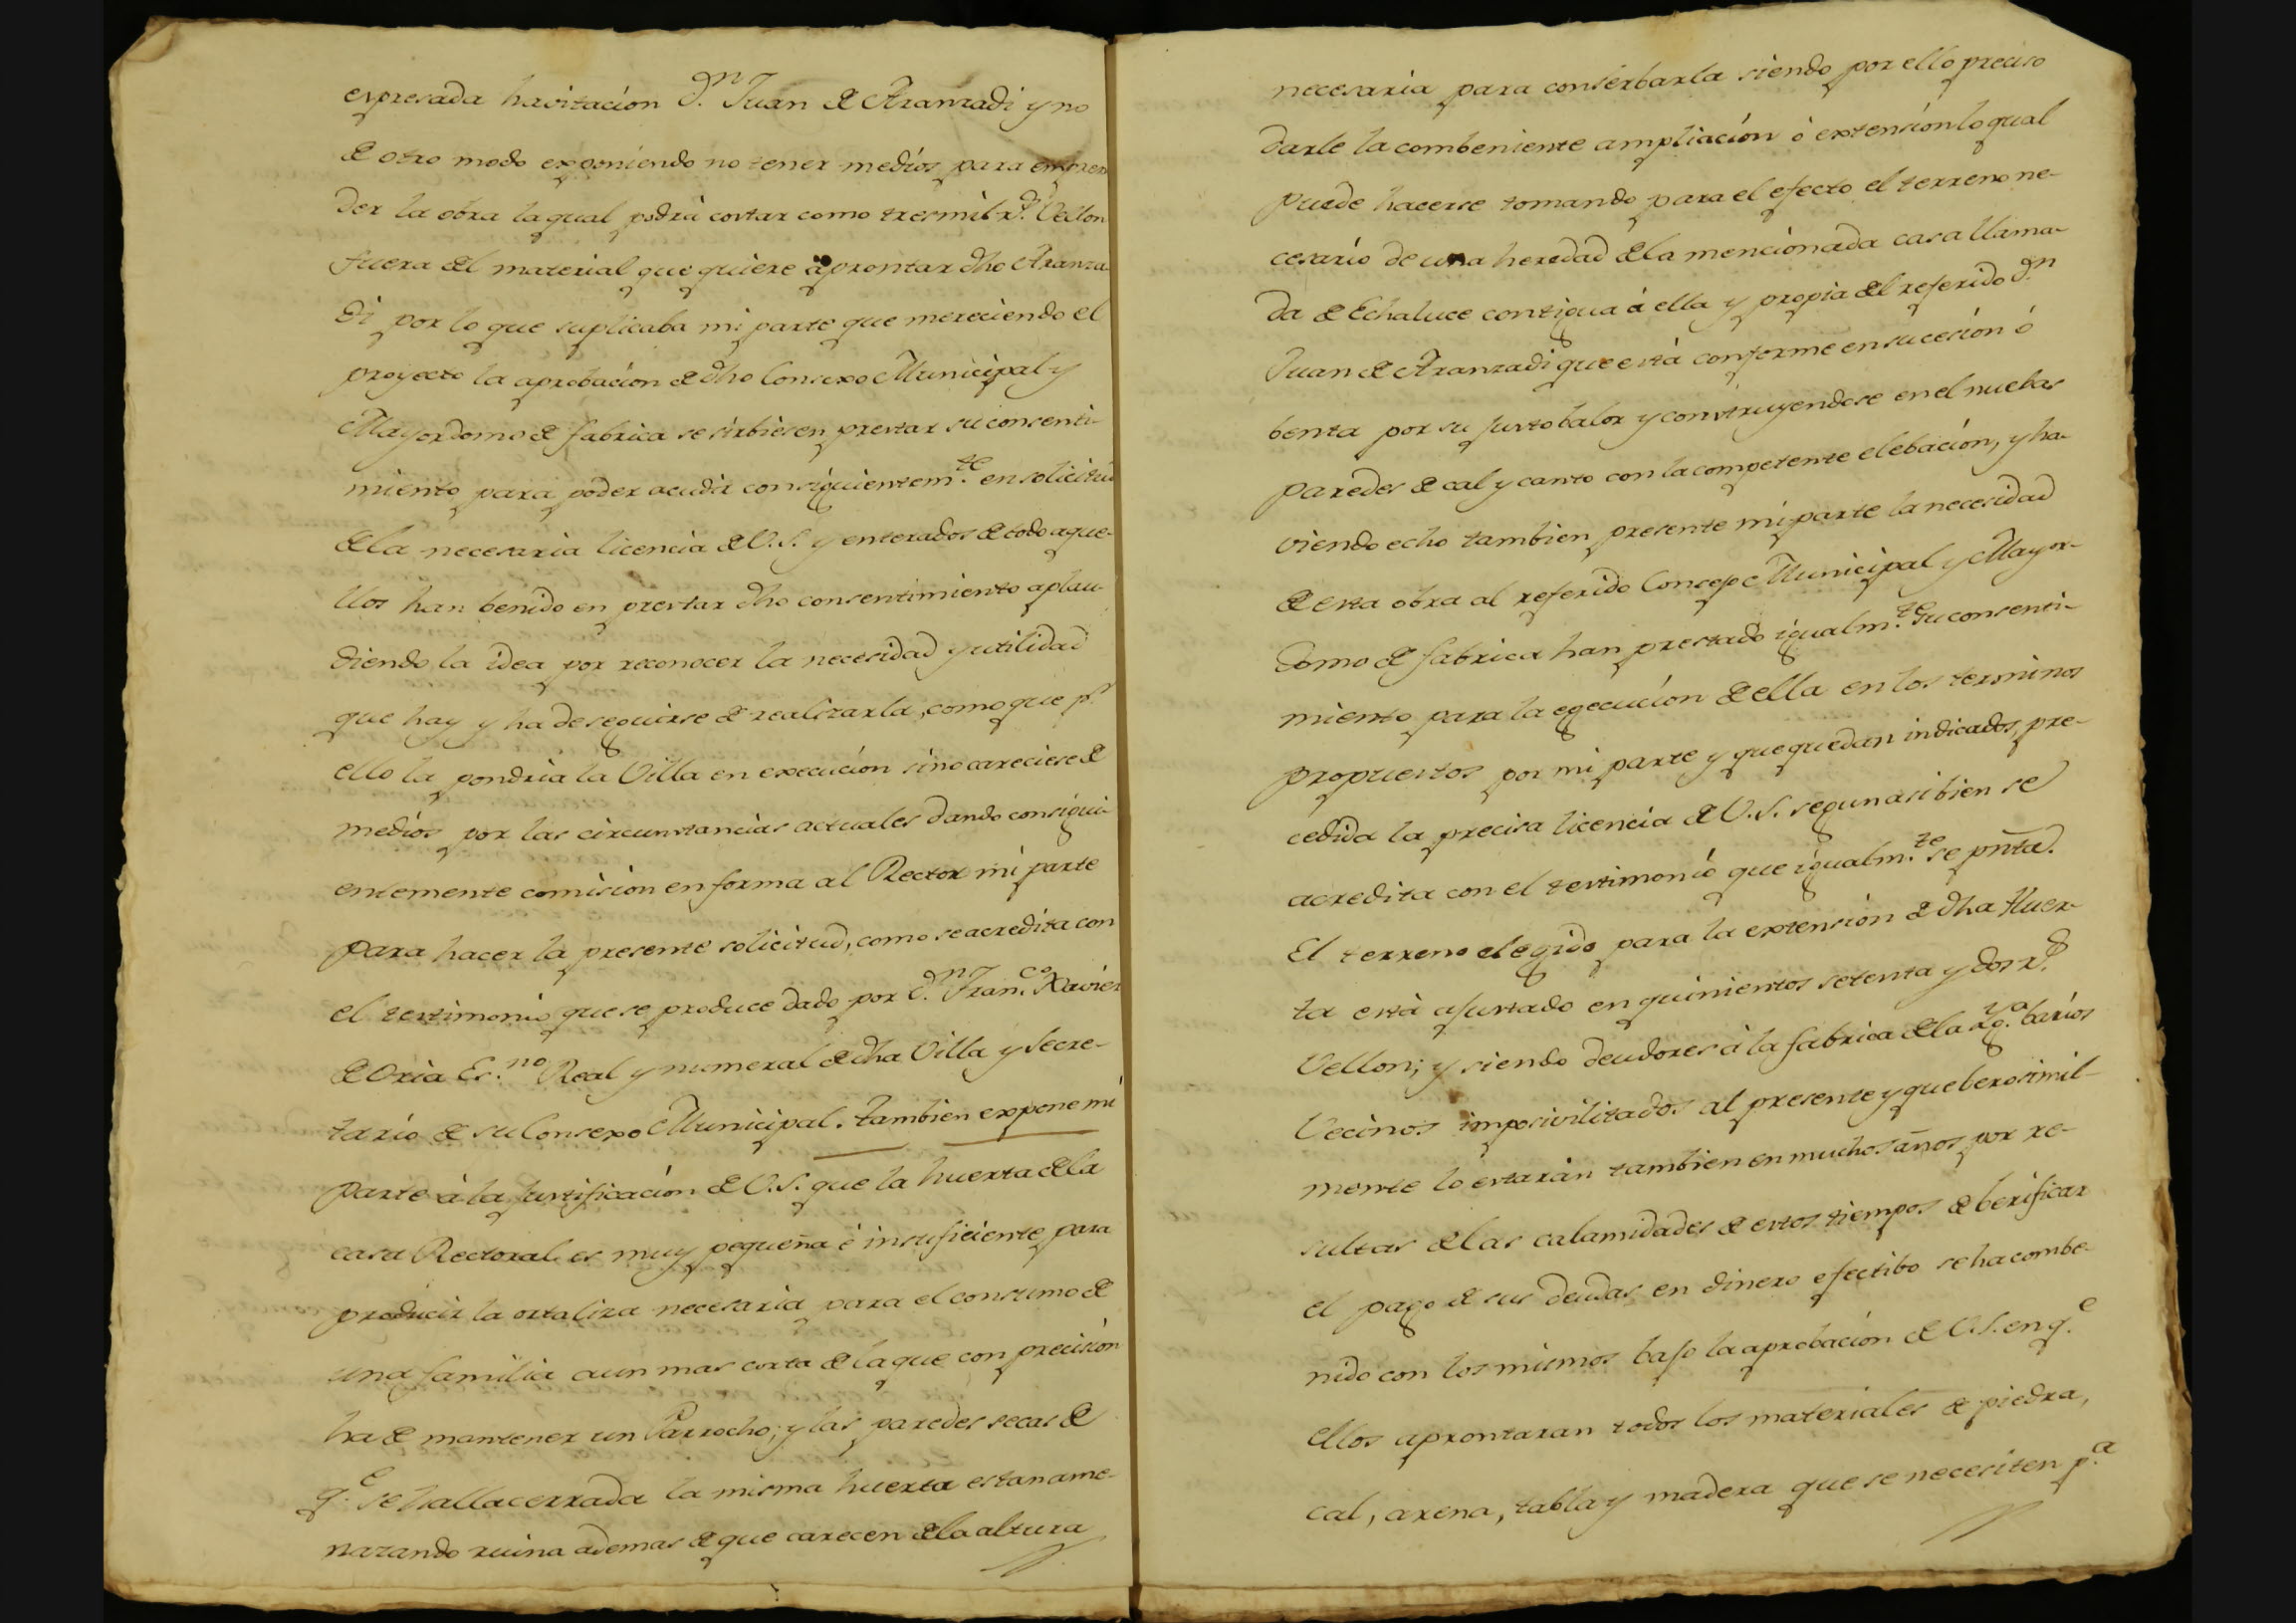 expresada havitacion D.n Juan de Aranzadi y no
de otro modo exponiendo no tener medios para empren
der la obra la qual podrá costar como tres mil r.s Vellon
fuera del material que quiere aprontar dho Aranza
di por lo que suplicaba mi parte que mereciendo el
proyecto la aprobacion de dho Consexo Municipal y
Mayordomo de fabrica se sirbiesen prestar su consenti-
miento para poder acudir consiguientem.te en solicitud
de la necesaria licencia de V.S. y enterados de todo aque-
llos han benido en prestar dho consentimiento aplau-
diendo la idea por reconocer la necesidad y utilidad
que hay y ha de seguirse de realizarla, como que p.r
ello la pondria la Villa en execucion sino careciese de
medios por las circunstancias actuales dando consigui-
entemente comision en forma al Rector mi parte
para hacer la presente solicitud, como se acredita con
el testimonio que se produce dado por D.n Fran.co Xavier
de Oria Es.no Real y numeral de dha Villa y Secre-
tario de su Consexo Municipal. Tambien expone mi
parte à la justificacion de V.S. que la huerta de la
casa Rectoral es muy pequeña é insuficiente para
producir la ortaliza necesaria para el consumo de
una familia aun mas corta de la que con precision
ha de mantener un Parrocho; y las paredes secas de
q.e se halla cerrada la misma huerta estan ame-
nazando ruina ademas de que carecen de la altura
necesaria para conserbarla siendo por ello preciso
darle la combeniente ampliacion ò extension lo qual
puede hacerse tomando para el efecto el terreno ne-
cesario de una heredad de la mencionada casa llama-
da de Echaluce contigua á ella y propia del referido D.n
Juan de Aranzadi que está conforme en su cesion ó
benta por su justo balor y construyendose en el nuebas
paredes de cal y canto con la competente elebacion, y ha-
viendo echo tambien presente mi parte la necesidad
de esta obra al referido Concejo Municipal y Mayor-
domo de fabrica han prestado igualm.te su consenti-
miento para la egecucion de ella en los terminos
propuestos por mi parte y que quedan indicados, pre-
cedida la precisa licencia de V.S. segun asi bien se
acredita con el testimonio que igualm.te se pnta.
El terreno elegido para la extension de dha Huer-
ta está ajustado en quinientos setenta y dos r.s
Vellon; y siendo deudores à la fabrica de la Yg.a barios
Vecinos imposivilitados al presente y que berosimil-
mente lo estarán tambien en muchos años por re-
sultas de las calamidades de estos tiempos de berificar
el pago de sus deudas en dinero efectibo se ha combe-
nido con los mismos bajo la aprobacion de V.S. en q.e
ellos aprontaran todos los materiales de piedra,
cal, arena, tabla y madera que se necesiten p.a